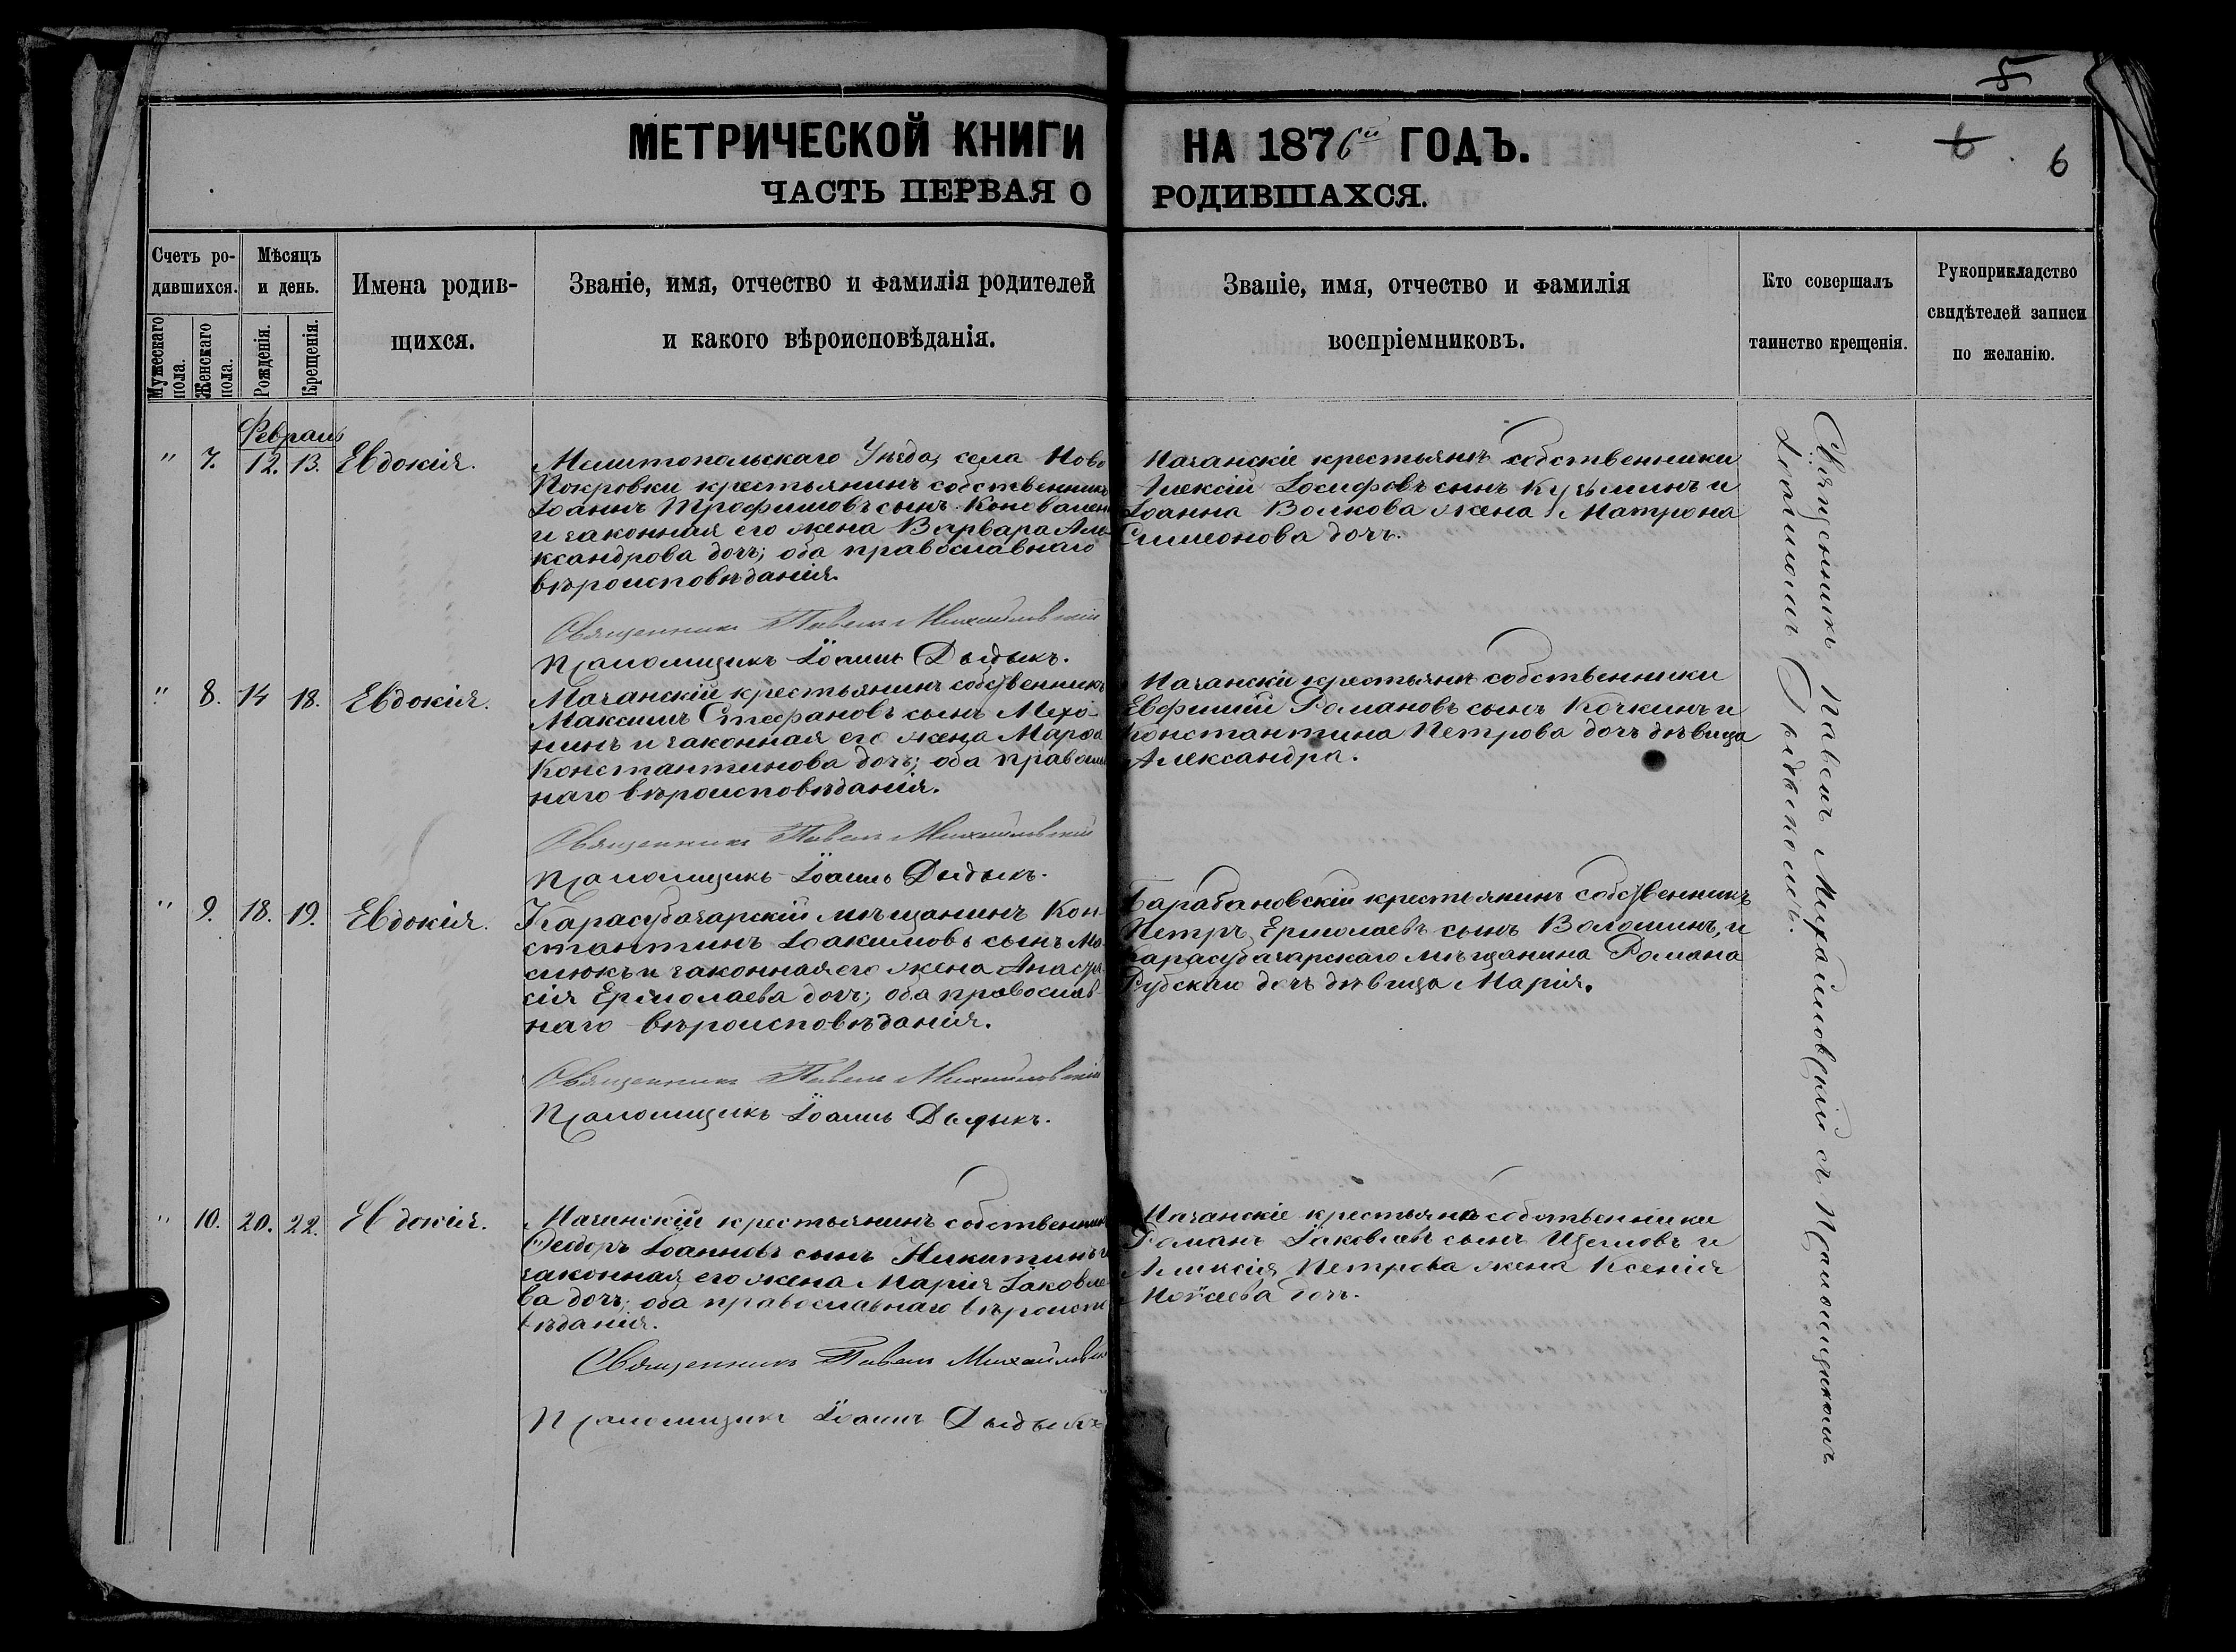 5
МЕТРИЧЕСКОЙ КНИГИ НА 1876й ГОДЪ.
6 . 6
ЧАСТЬ ПЕРВАЯ О РОДИВШАХСЯ.
Счетъ ро-
дившихся.
Мужескаго
пола.
Женскаго
пола.
Мѣсяцъ
и день.
Рожденія.
Крещенія.
Имена родив-
щихся.
Званіе, имя, отчество и фамилія родителей
и какого вѣроисповѣданія.
Званіе, имя, отчество и фамилія
воспріемниковъ.
Кто совершалъ
таинство крещенія.
Рукоприкладство
свидѣтелей записи
по желанію.
Февраль
" 7. 12. 13. Евдокія.
Мелитопольскаго Уѣзда, села Ново
Покровки крестьянинъ собственникъ
Іоаннъ Трофимовъ сынъ
и законная его жена Варвара Але-
ксандрова дочь; оба православнаго
вѣроисповѣданія.
Священникъ Павелъ Михайловскій
Псаломщикъ Іоаннъ Дыдыкъ.
Мачанскіе крестьяне собственники
Алексій Іосифовъ сынъ Кузьминъ и
Іоанна Волкова жена Матрона
Симеонова дочь.
" 8. 14 18. Евдокія.
Мачанскій крестьянинъ собственникъ
Максимъ Стефановъ сынъ Мехо-
нинъ и законная его жена Марѳа
Константинова дочь; оба православ
наго вѣроисповѣданія.
Священникъ Павелъ Михайловскій
Псаломщикъ Іоаннъ Дыдыкъ.
Мачанскіе крестьяне собственники
Евфимій Романовъ сынъ Кочкинъ и
Константина Петрова дочь дѣвица
Александра.
" 9. 18. 19. Евдокія.
Карасубазарскій мѣщанинъ Кон-
стантинъ Іоакимовъ сынъ Мо-
сюкъ и законная его жена Анаста
сія Ермолаева дочь; оба православ-
наго вѣроисповѣданія.
Священникъ Павелъ Михайловскій
Псаломщикъ Іоаннъ Дыдыкъ.
Барабановскій крестьянинъ собственникъ
Петръ Ермолаевъ сынъ Волошинъ, и
Карасубазарскаго мѣщанина Романа
дочь дѣвица Марія.
" 10. 20. 22. Евдокія.
Мачанскій крестьянинъ собственникъ
Ѳеодоръ Іоанновъ сынъ Никитинъ и
законная его жена Марія Іаковле
ва дочь; оба православнаго вѣроиспо
вѣданія.
Священникъ Павелъ Михайловскій
Псаломщикъ Іоаннъ Дыдыкъ
Мачанскіе крестьяне собственники
Романъ Іаковлевъ сынъ Щегловъ и
Алексія Петрова жена Ксенія
Моѵсеева дочь.
Священникъ Павелъ Михайловскій съ Псаломщикомъ
Іоанномъ Дыдыкомъ.